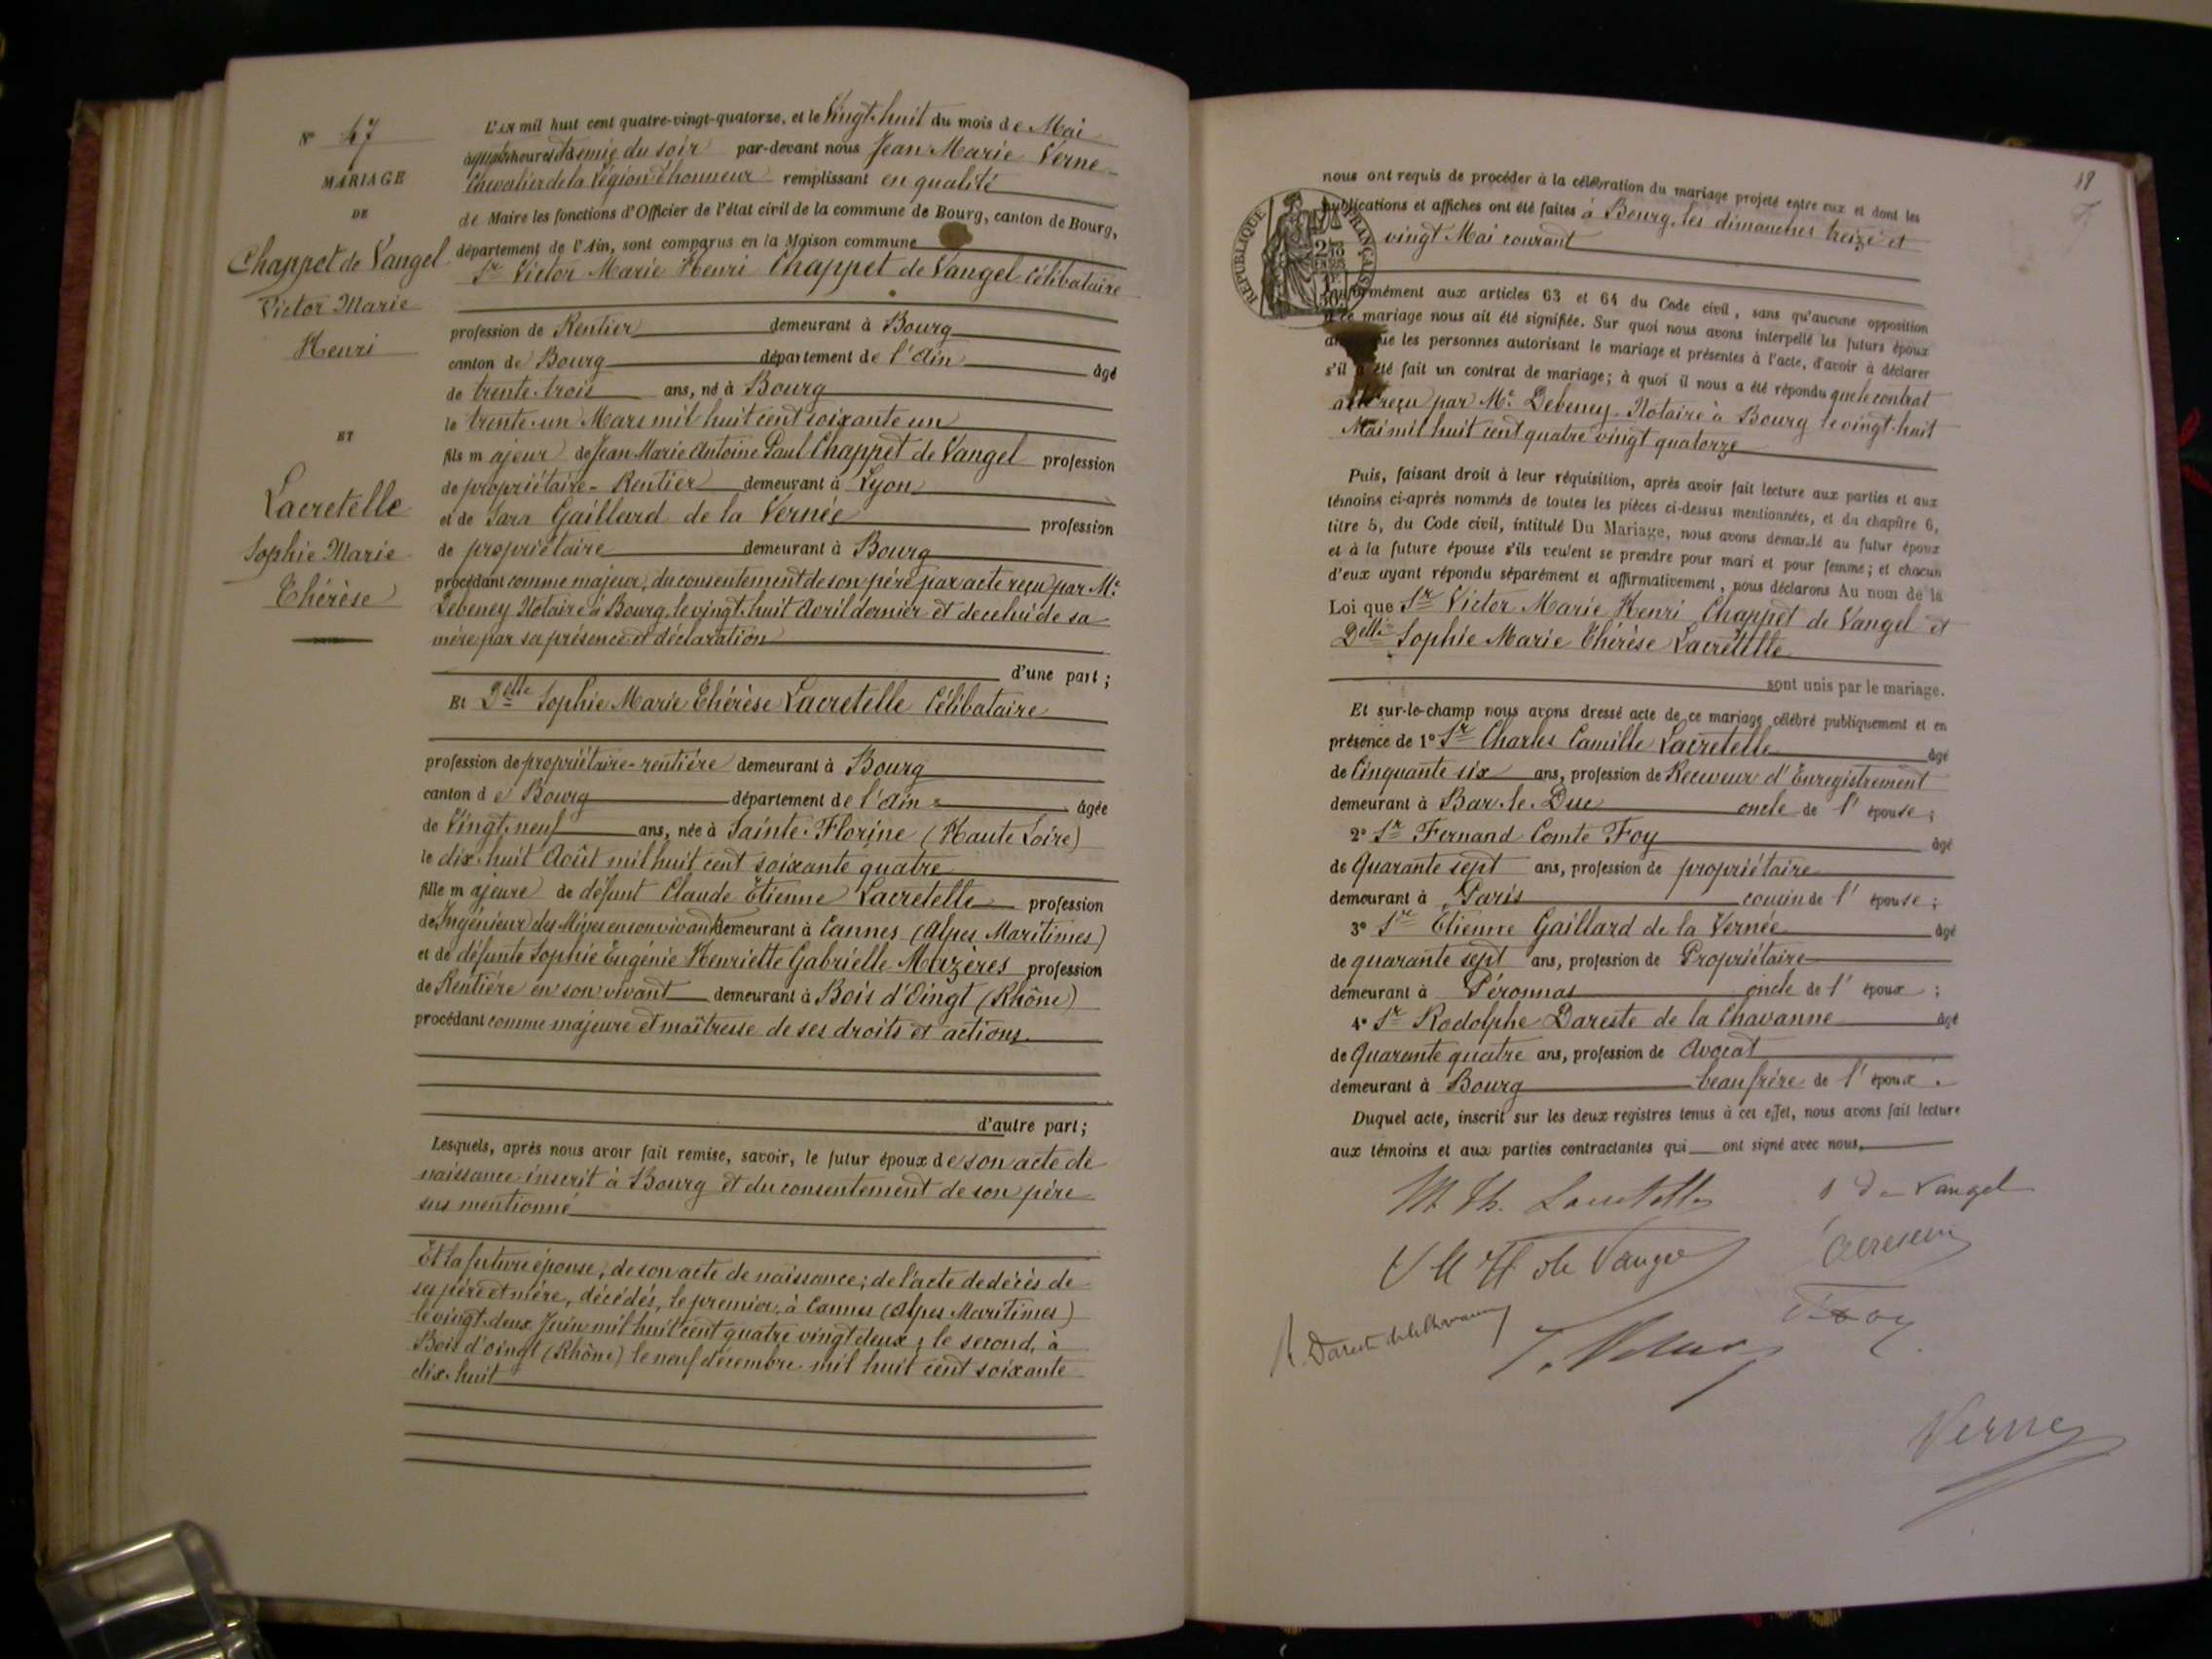 N° 47
MARIAGE
DE
Chappet de Vangel
Victor Marie
Henri
ET
Lacretelle
Sophie Marie
Thérèse
L'an mil huit cent quatre-vingt-quatorze, et le Vingt-huit du mois de Mai
heures & demie du soir par-devant nous Jean Marie Verne
Chevalier de la Légion d'honneur remplissant en qualité
de Maire les fonctions d'Officier de l'état civil de la commune de Bourg, canton de Bourg,
département de l'Ain, sont comparus en la Maison commune
Sr Victor Marie Henri Chappet de Vangel Célibataire
profession de Rentier demeurant à Bourg
canton de Bourg département de l'Ain âgé
de trente-trois ans, né à Bourg
le trente-un Mars mil huit cent soixante un
fils majeur de Jean Marie Antoine Paul Chappet de Vangel profession
de propriétaire-Rentier demeurant à Lyon
et de Sara Gaillard de la Vernée profession
de propriétaire demeurant à Bourg
procédant comme majeur, du consentement de son père par acte reçu par Me
Debeney Notaire à Bourg, le vingt-huit Avril dernier et de celui de sa
mère par sa présence et déclaration
d'une part;
Et Delle Sophie Marie Thérèse Lacretelle Célibataire
profession de propriétaire-rentière demeurant à Bourg
canton de Bourg département de l'Ain âgée
de Vingt-neuf ans, née à Sainte-Florine (Haute Loire)
le dix-huit Août mil huit cent soixante quatre
fille majeure de défunt Claude Etienne Lacretelle profession
de Ingénieur des Mines en son vivant demeurant à Cannes (Alpes Maritimes)
et de défunte Sophie Eugénie Henriette Gabrielle Mazères profession
de Rentière en son vivant demeurant à Bois d'Oingt (Rhône)
procédant comme majeure et maîtresse de ses droits et actions
d'autre part;
Lesquels, après nous avoir fait remise, savoir, le futur époux de son acte de
naissance inscrit à Bourg et du consentement de son père
sus mentionné
Et la future épouse, de son acte de naissance; de l'acte de décès de
ses père et mère, décédés, le premier, à Cannes (Alpes Maritimes)
le vingt-deux Juin mil huit cent quatre vingt deux; le second, à
Bois d'Oingt (Rhône) le neuf décembre mil huit cent soixante
dix-huit
19
nous ont requis de procéder à la célébration du mariage projeté entre eux et dont les
publications et affiches ont été faites à Bourg, les dimanches treize et
vingt Mai courant
RÉPUBLIQUE FRANÇAISE
conformément aux articles 63 et 64 du Code civil, sans qu'aucune opposition
à ce mariage nous ait été signifiée. Sur quoi nous avons interpellé les futurs époux
que les personnes autorisant le mariage et présentes à l'acte, d'avoir à déclarer
s'il a été fait un contrat de mariage; à quoi il nous a été répondu que le contrat
a été reçu par Me Debeney Notaire à Bourg le vingt-huit
Mai mil huit cent quatre vingt quatorze
Puis, faisant droit à leur réquisition, après avoir fait lecture aux parties et aux
témoins ci-après nommés de toutes les pièces ci-dessus mentionnées, et du chapitre 6,
titre 5, du Code civil, intitulé Du Mariage, nous avons demandé au futur époux
et à la future épouse s'ils veulent se prendre pour mari et pour femme; et chacun
d'eux ayant répondu séparément et affirmativement, nous déclarons Au nom de la
Loi que Sr Victor Marie Henri Chappet de Vangel et
Delle Sophie Marie Thérèse Lacretelle
sont unis par le mariage.
Et sur-le-champ nous avons dressé acte de ce mariage célébré publiquement et en
présence de 1° Sr Charles Camille Lacretelle âgé
de Cinquante six ans, profession de Receveur d'Enregistrement
demeurant à Bar-le-Duc oncle de l'épouse;
2° Sr Fernand Comte Foy âgé
de Quarante sept ans, profession de propriétaire
demeurant à Paris cousin de l'épouse;
3° Sr Etienne Gaillard de la Vernée âgé
de quarante sept ans, profession de Propriétaire
demeurant à Péronnas oncle de l'époux;
4° Sr Rodolphe Dareste de la Chavanne âgé
de Quarante quatre ans, profession de Avocat
demeurant à Bourg beau frère de l'époux.
Duquel acte, inscrit sur les deux registres tenus à cet effet, nous avons fait lecture
aux témoins et aux parties contractantes qui ont signé avec nous.
M. Th. Lacretelle
de Vangel
V M H de Vangel
R. Dareste de la Chavanne
Foy
Verne